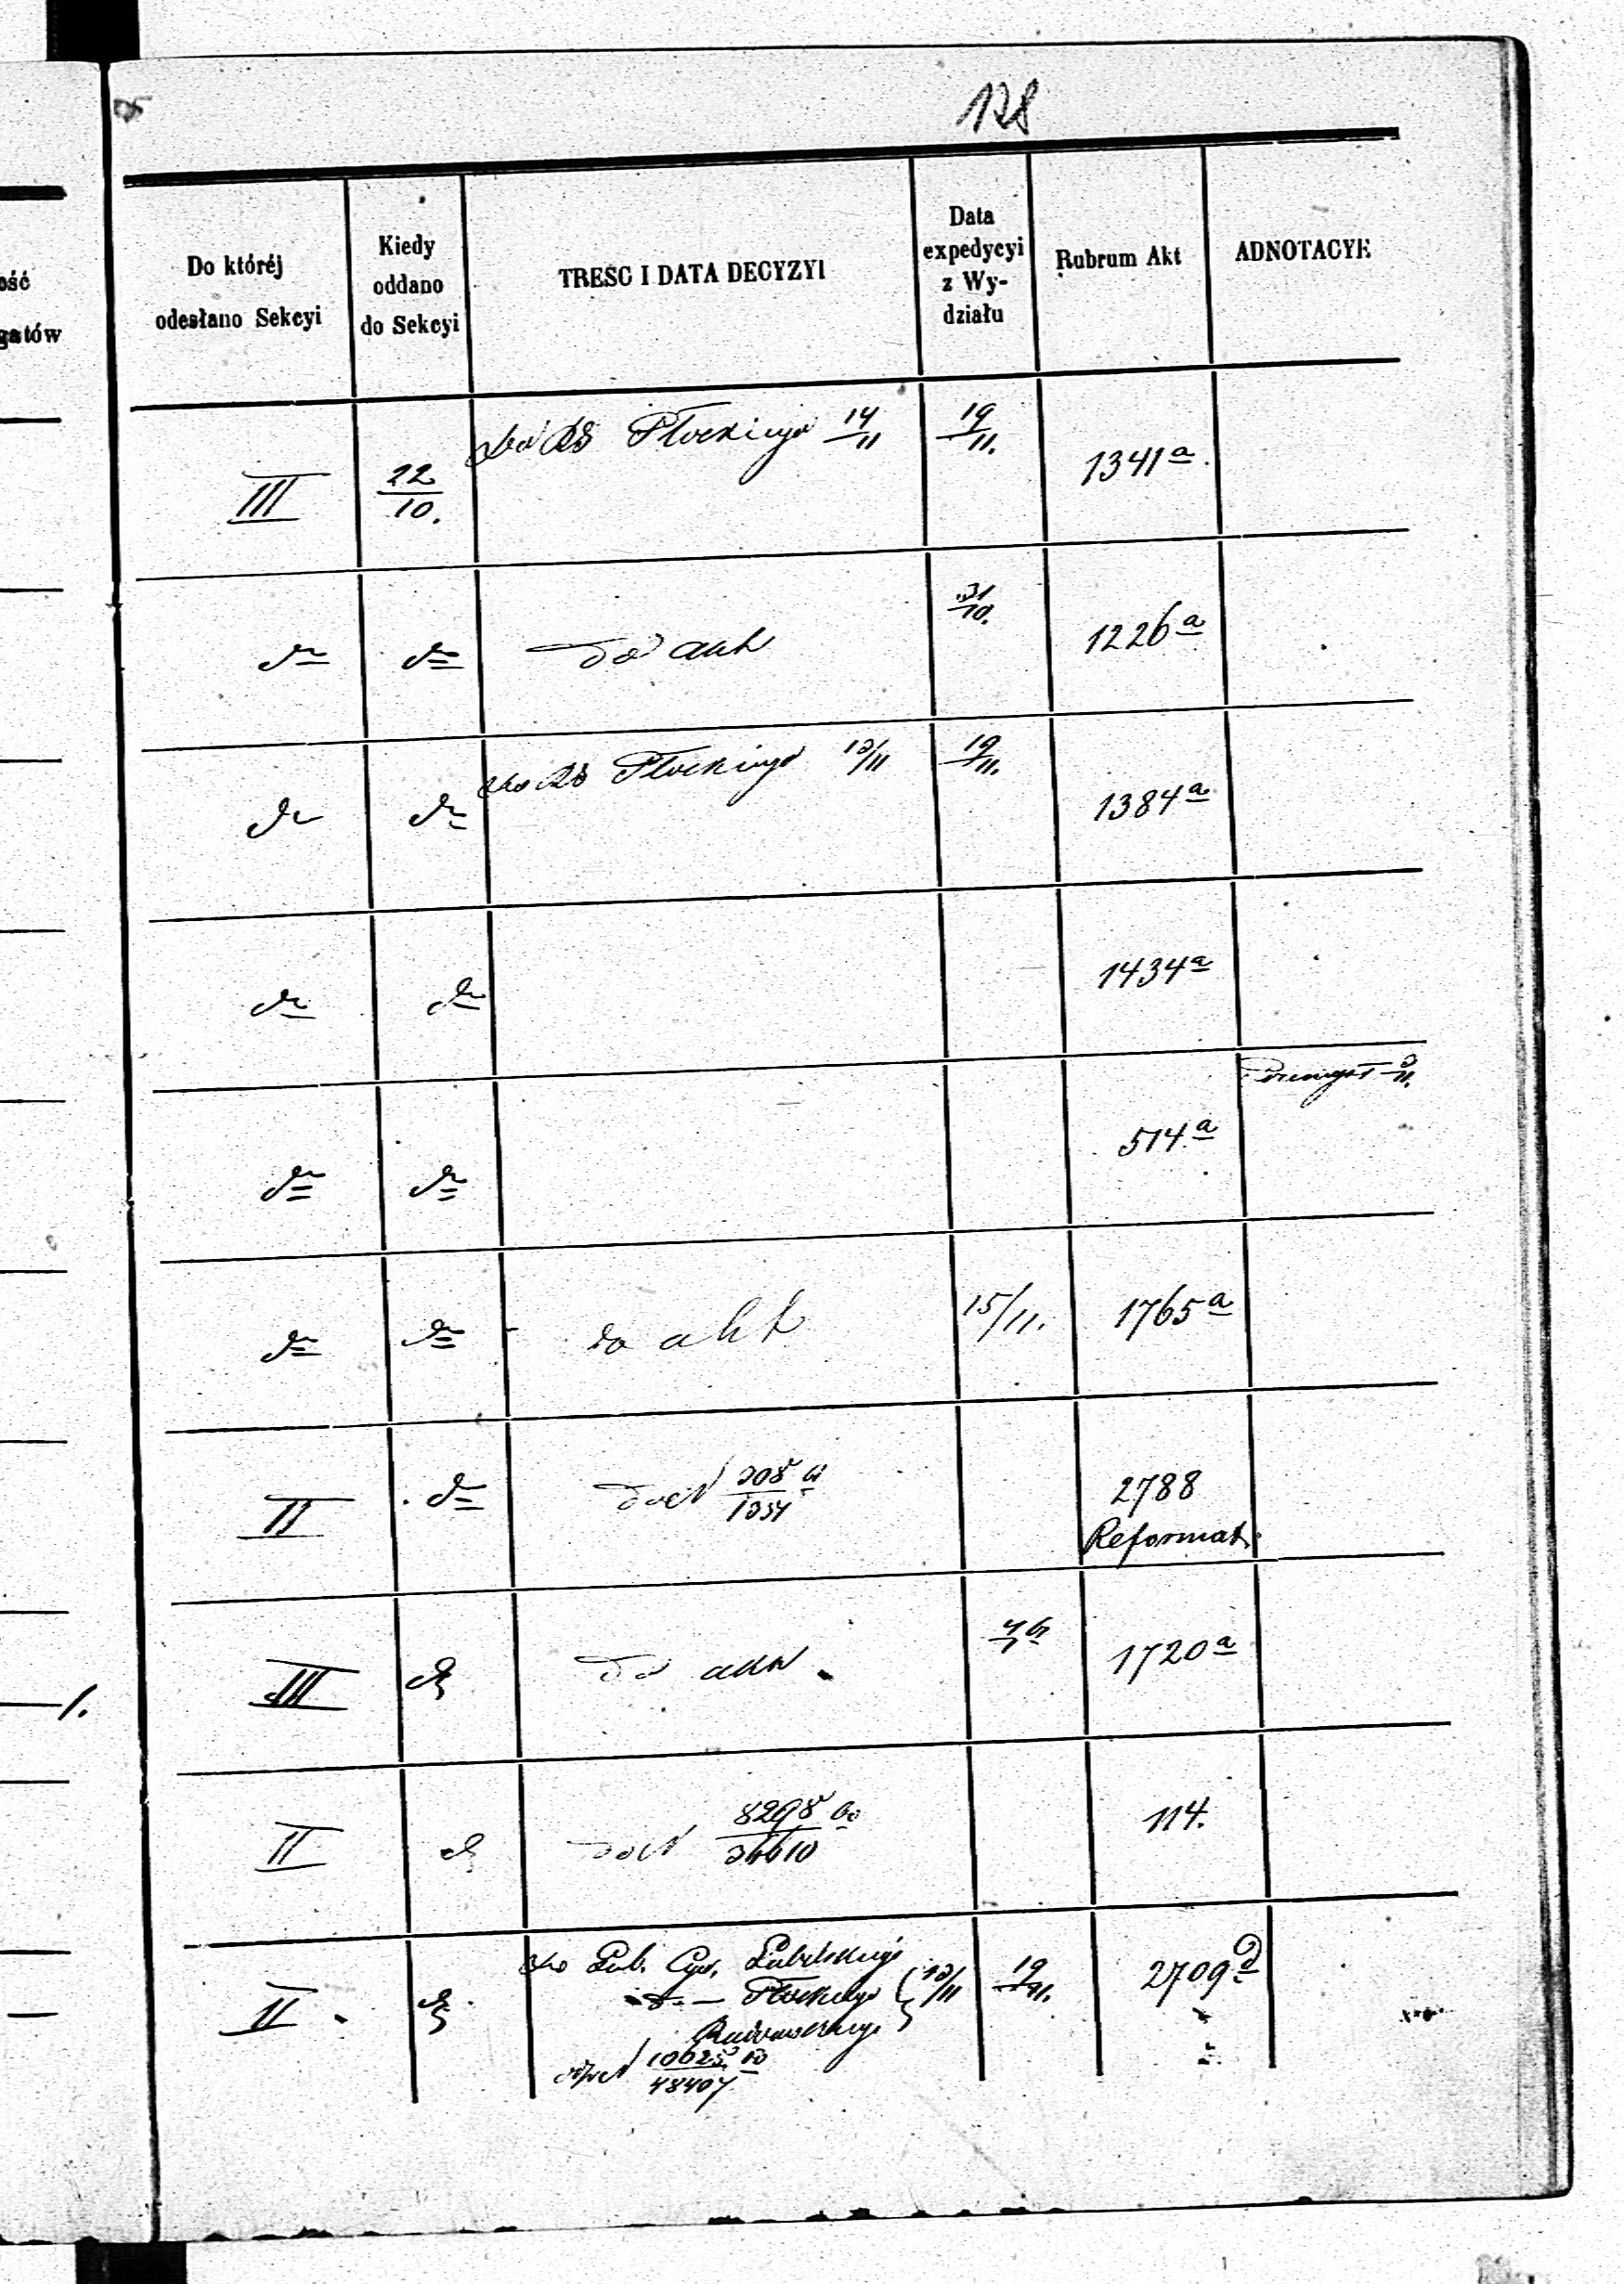 128
ość
gatów
Do któréj
odesłano Sekcyi
Kiedy
oddano
do Sekcyi
TREŚC I DATA DECYZYI
Data
expedycyi
z Wy-
działu
Rubrum Akt
ADNOTACYE
III
22
10.
Płockiego 14/11
19
11.
1341 a.
do
do
Do akt
31
10.
1226 a
do
do
Płockiego 13/11
19
11.
1384 a
do
do
1434 a
do
do
514 a
do
do
do akt
15/11.
1765 a
II
do
2788
Reformat.
III
do
Do akt
1720 a
II
do
8298
36610
114.
II
do
Gub. Cyw. Lubelskiego
Płockiego 13/11
Radomskiego
10625
48407
19
11.
2709 d